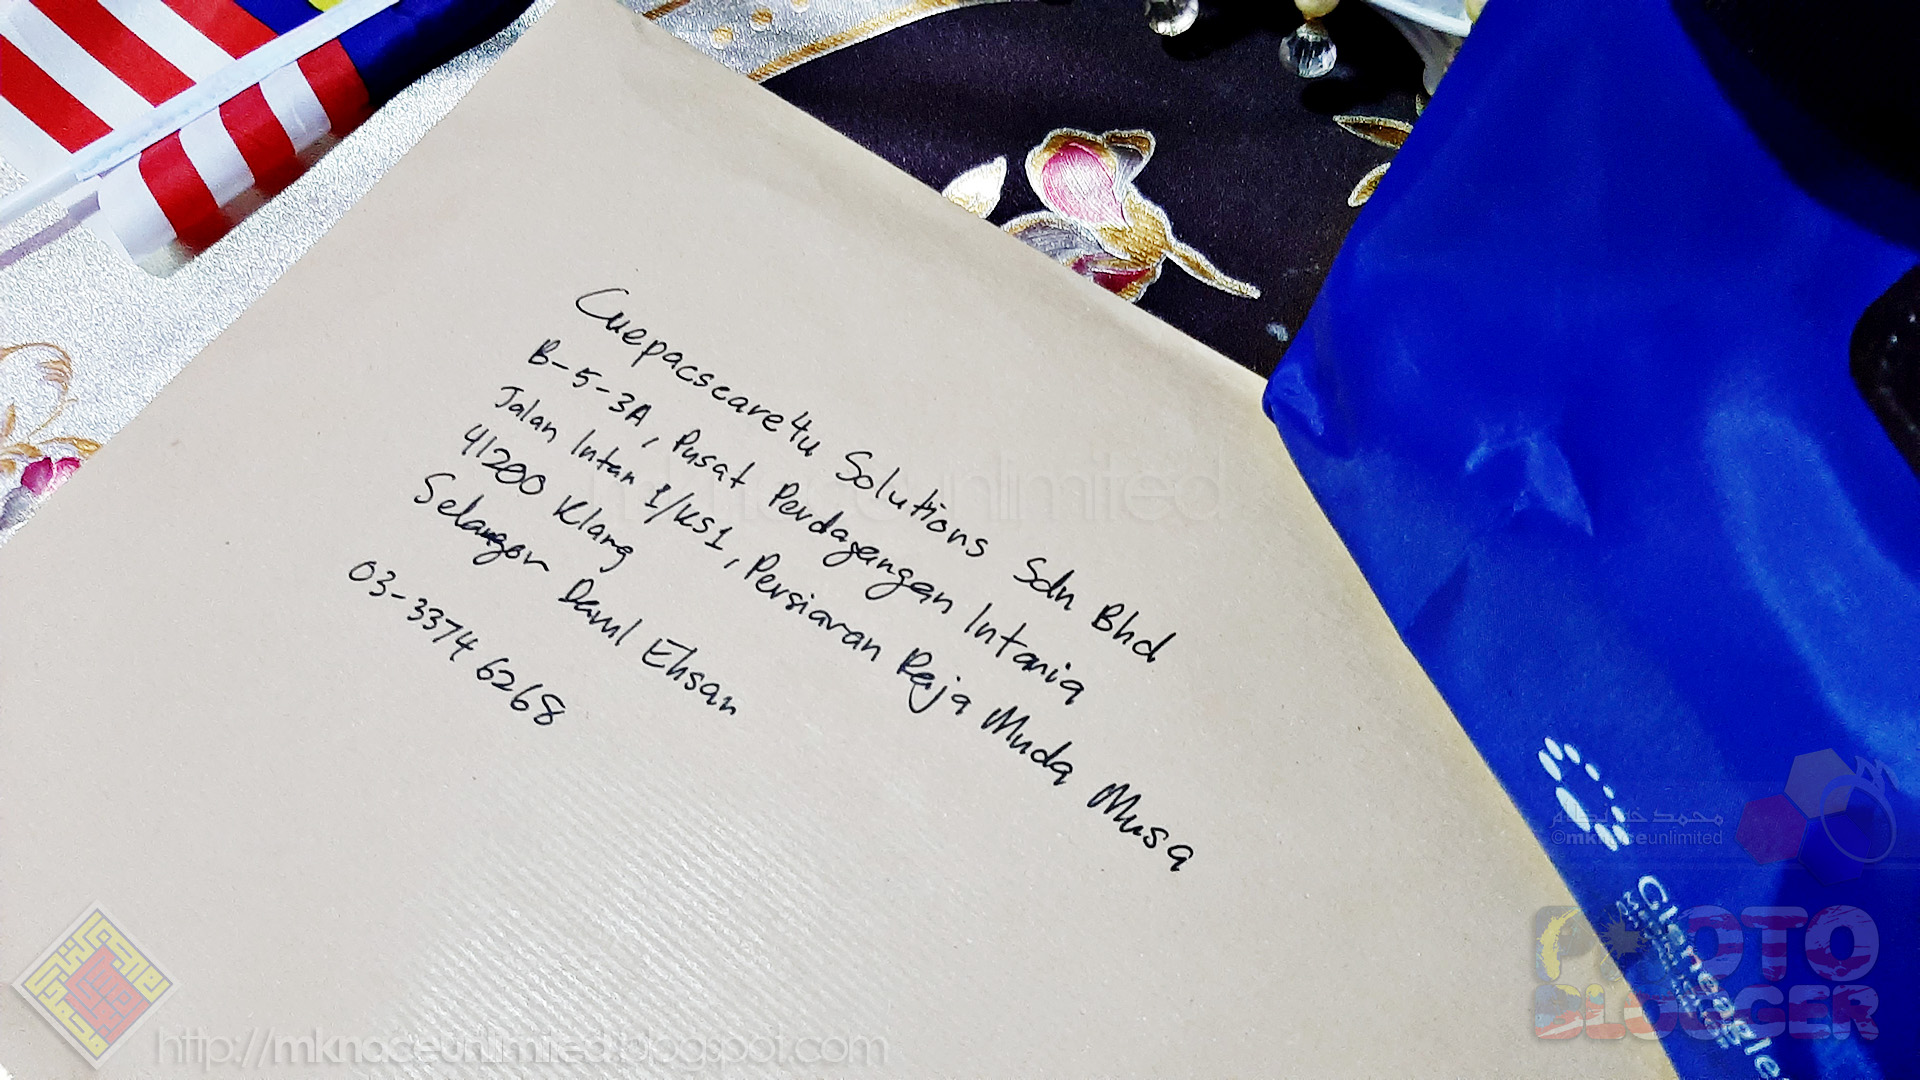 Cuepacscare4u Solutions Sdn Bhd
B-5-3A, Pusat Perdagangan Intania
Jalan Intan 1/KS1, Persiaran Raja Muda Musa
41200 Klang
Selangor Darul Ehsan
03-3374 6268
mknaceunlimited
©mknaceunlimited
Gleneagles
PHOTO
BLOGGER
http://mknaceunlimited.blogspot.com